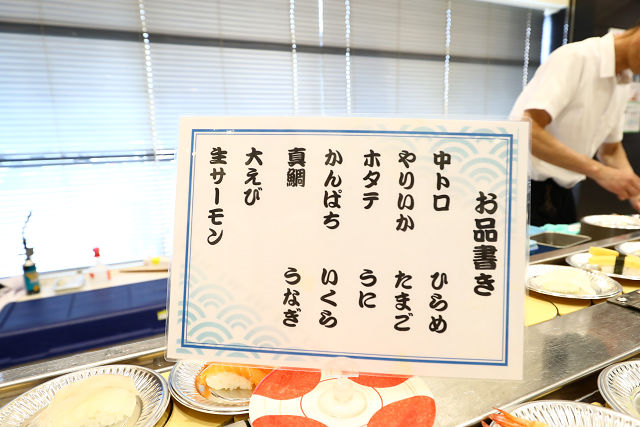 お品書き
中トロ
やりいか
ホタテ
かんぱち
真鯛
大えび
生サーモン
ひらめ
たまご
うに
いくら
うなぎ